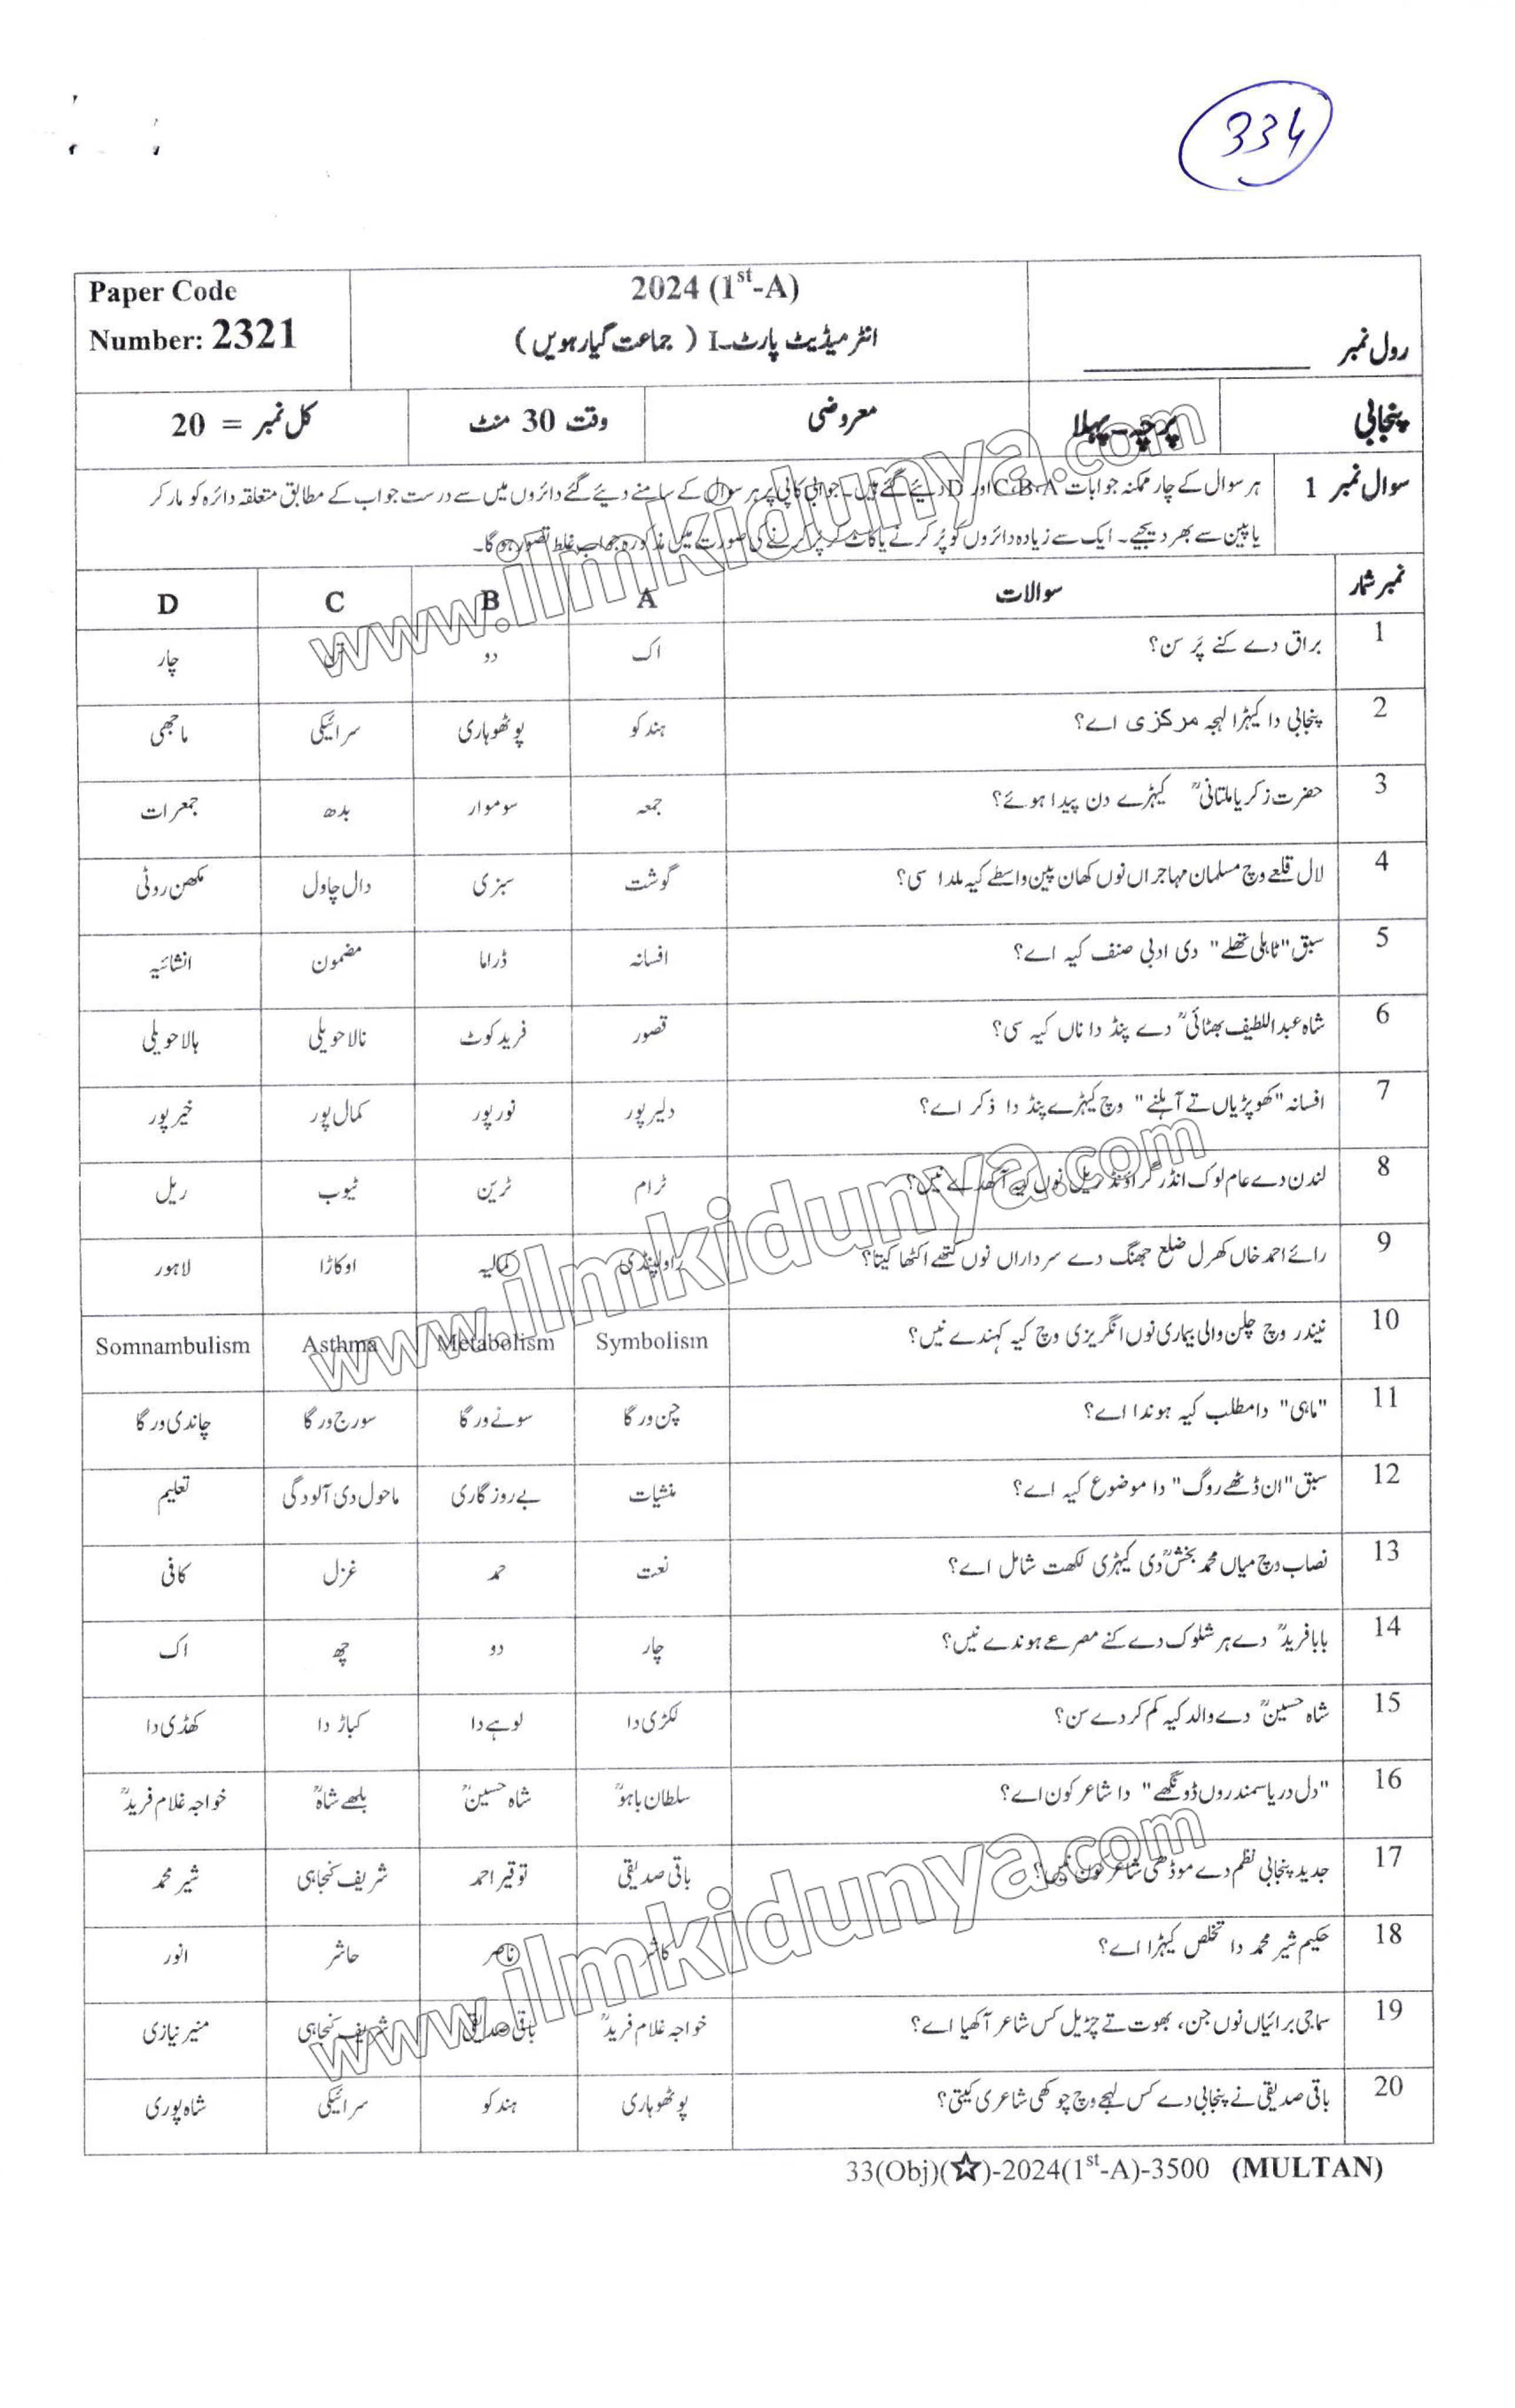 334
Paper Code
Number: 2321
2024 (1st-A)
انٹرمیڈیٹ پارٹ-I ( جماعت گیارہویں )
رول نمبر
پنجابی
پرچہ - پہلا
معروضی
وقت 30 منٹ
کل نمبر = 20
سوال نمبر 1
ہر سوال کے چار ممکنہ جوابات C،B،A اور D دیئے گئے ہیں۔ جوابی کاپی پر ہر سوال کے سامنے دیئے گئے دائروں میں سے درست جواب کے مطابق متعلقہ دائرہ کو مارکر
یا پین سے بھر دیجیے۔ ایک سے زیادہ دائروں کو پُر کرنے یا کاٹ کر پُر کرنے کی صورت میں مذکورہ جواب غلط تصور ہو گا۔
نمبر شمار سوالات A B C D
1 براق دے کنے پَر سن؟ اک دو چار
2 پنجابی دا کیہڑا لہجہ مرکزی اے؟ ہندکو پوٹھوہاری سرائیکی ماجھی
3 حضرت زکریا ملتانیؒ کیہڑے دن پیدا ہوئے؟ جمعہ سوموار بدھ جمعرات
4 لال قلعے وچ مسلمان مہاجراں نوں کھان پین واسطے کیہ ملدا سی؟ گوشت سبزی دال چاول مکھن روٹی
5 سبق "ٹاہلی تھلے" دی ادبی صنف کیہ اے؟ افسانہ ڈراما مضمون انشائیہ
6 شاہ عبداللطیف بھٹائیؒ دے پنڈ دا ناں کیہ سی؟ قصور فرید کوٹ نالا حویلی ہالا حویلی
7 افسانہ "کھوپڑیاں تے آہلنے" وچ کیہڑے پنڈ دا ذکر اے؟ دلیر پور نور پور کمال پور خیر پور
8 لندن دے عام لوک انڈر گراؤنڈ ریل نوں کیہ آکھدے نیں؟ ٹرام ٹرین ٹیوب ریل
9 رائے احمد خاں کھرل ضلع جھنگ دے سرداراں نوں کتھے اکٹھا کیتا؟ راولپنڈی کمالیہ اوکاڑا لاہور
10 نیندر وچ چلن والی بیماری نوں انگریزی وچ کیہ کہندے نیں؟ Symbolism Metabolism Asthma Somnambulism
11 "ماہی" دا مطلب کیہ ہوندا اے؟ چن ورگا سونے ورگا سورج ورگا چاندی ورگا
12 سبق "ان ڈٹھے روگ" دا موضوع کیہ اے؟ منشیات بے روزگاری ماحول دی آلودگی تعلیم
13 نصاب وچ میاں محمد بخشؒ دی کیہڑی لکھت شامل اے؟ نعت حمد غزل کافی
14 بابا فریدؒ دے ہر شلوک دے کنے مصرعے ہوندے نیں؟ چار دو چھ اک
15 شاہ حسینؒ دے والد کیہ کم کردے سن؟ لکڑی دا لوہے دا کباڑ دا کھڈی دا
16 "دل دریا سمندروں ڈونگھے" دا شاعر کون اے؟ سلطان باہوؒ شاہ حسینؒ بلھے شاہؒ خواجہ غلام فریدؒ
17 جدید پنجابی نظم دے موڈھی شاعر کون نیں؟ باقی صدیقی توقیر احمد شریف کنجاہی شیر محمد
18 حکیم شیر محمد دا تخلص کیہڑا اے؟ ناصر حاشر انور
19 سماجی برائیاں نوں جن، بھوت تے چڑیل کس شاعر آکھیا اے؟ خواجہ غلام فریدؒ باقی صدیقی شریف کنجاہی منیر نیازی
20 باقی صدیقی نے پنجابی دے کس لہجے وچ چوکھی شاعری کیتی؟ پوٹھوہاری ہندکو سرائیکی شاہ پوری
33(Obj)(☆)-2024(1st-A)-3500 (MULTAN)
www.ilmkidunya.com
www.ilmkidunya.com
www.ilmkidunya.com